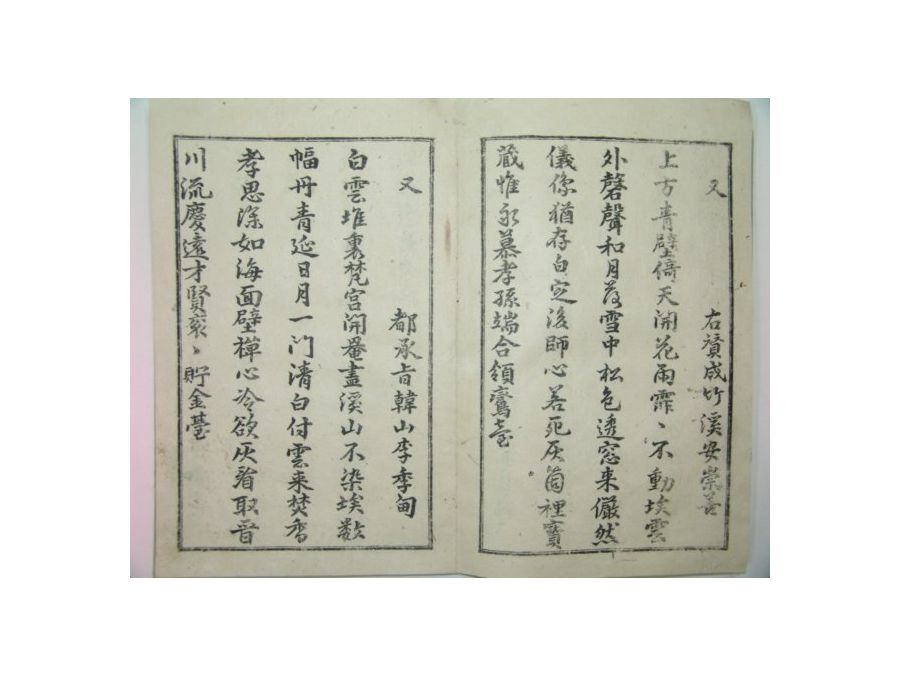 又
右贊成竹溪安崇善
上方青壁倚天開花雨霏〻不動埃雲
外磬聲和月落雪中松色透窓来儼然
儀像猶存白定後師心若死灰箇裡寶
藏惟永慕孝孫端合領鸞臺
又
都承㫖韓山李季甸
白雲堆裏梵宮開罨畵溪山不染埃数
幅丹青延日月一門清白付雲来焚香
孝思深如海面壁禅心冷欲灰看取晋
川流慶遠才賢衮〻貯金臺